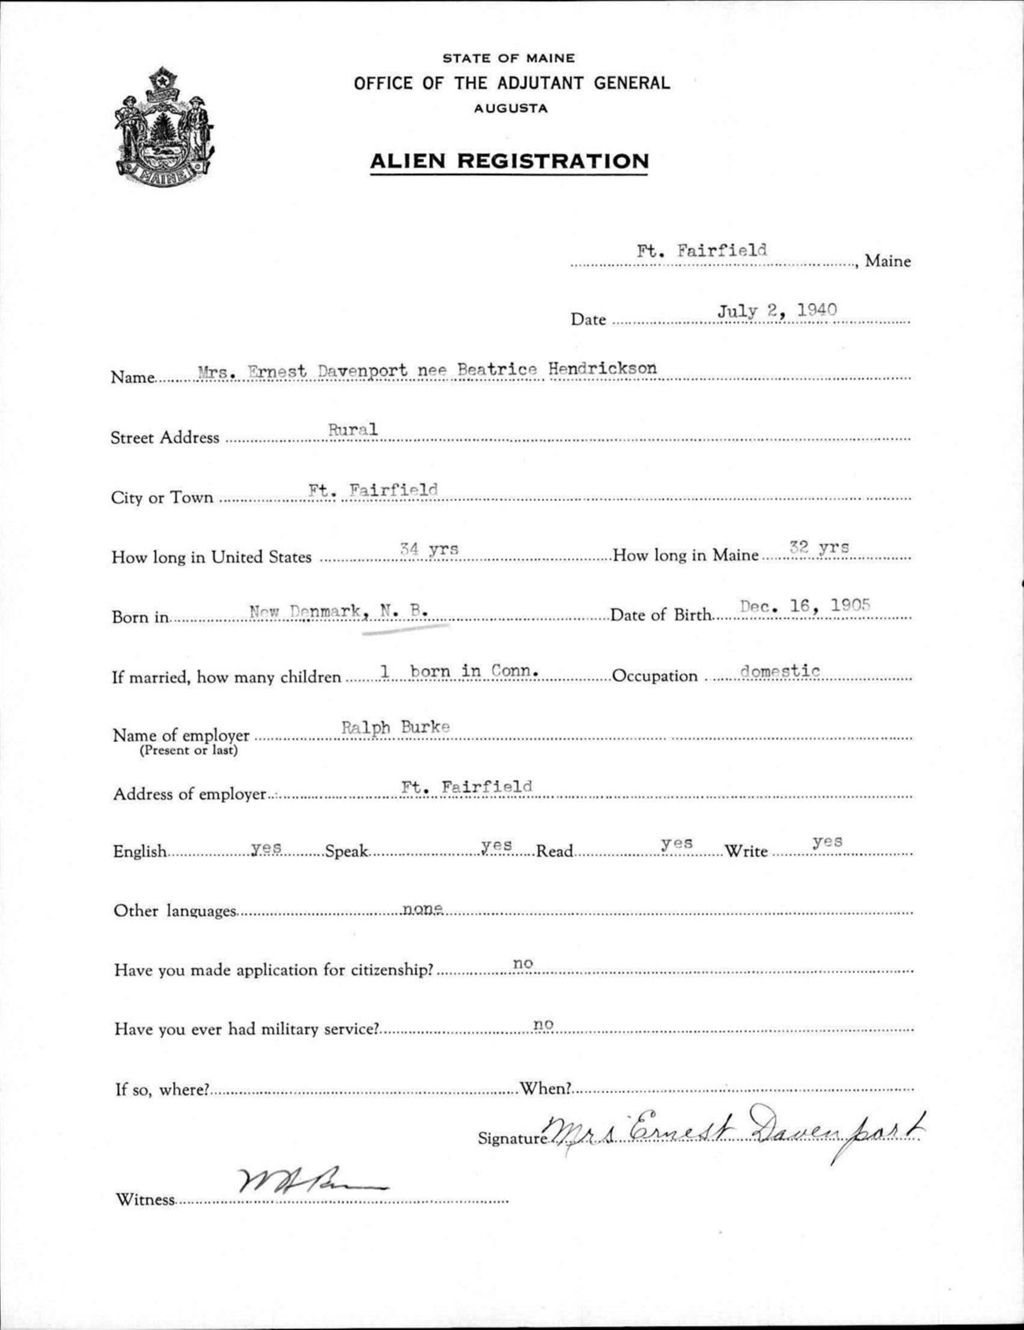 STATE OF MAINE
OFFICE OF THE ADJUTANT GENERAL
AUGUSTA
ALIEN REGISTRATION
MAINE
Ft. Fairfield, Maine
Date July 2, 1940
Name Mrs. Ernest Davenport nee Beatrice Hendrickson
Street Address Rural
City or Town Ft. Fairfield
How long in United States 34 yrs How long in Maine 32 yrs
Born in New Denmark, N. B. Date of Birth Dec. 16, 1905
If married, how many children 1 born in Conn. Occupation domestic
Name of employer Ralph Burke
(Present or last)
Address of employer Ft. Fairfield
English yes Speak yes Read yes Write yes
Other languages none
Have you made application for citizenship? no
Have you ever had military service? no
If so, where? When?
Signature Mrs Ernest Davenport
Witness